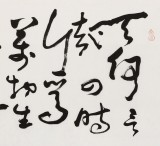 天何言
哉四時
行焉
萬物生